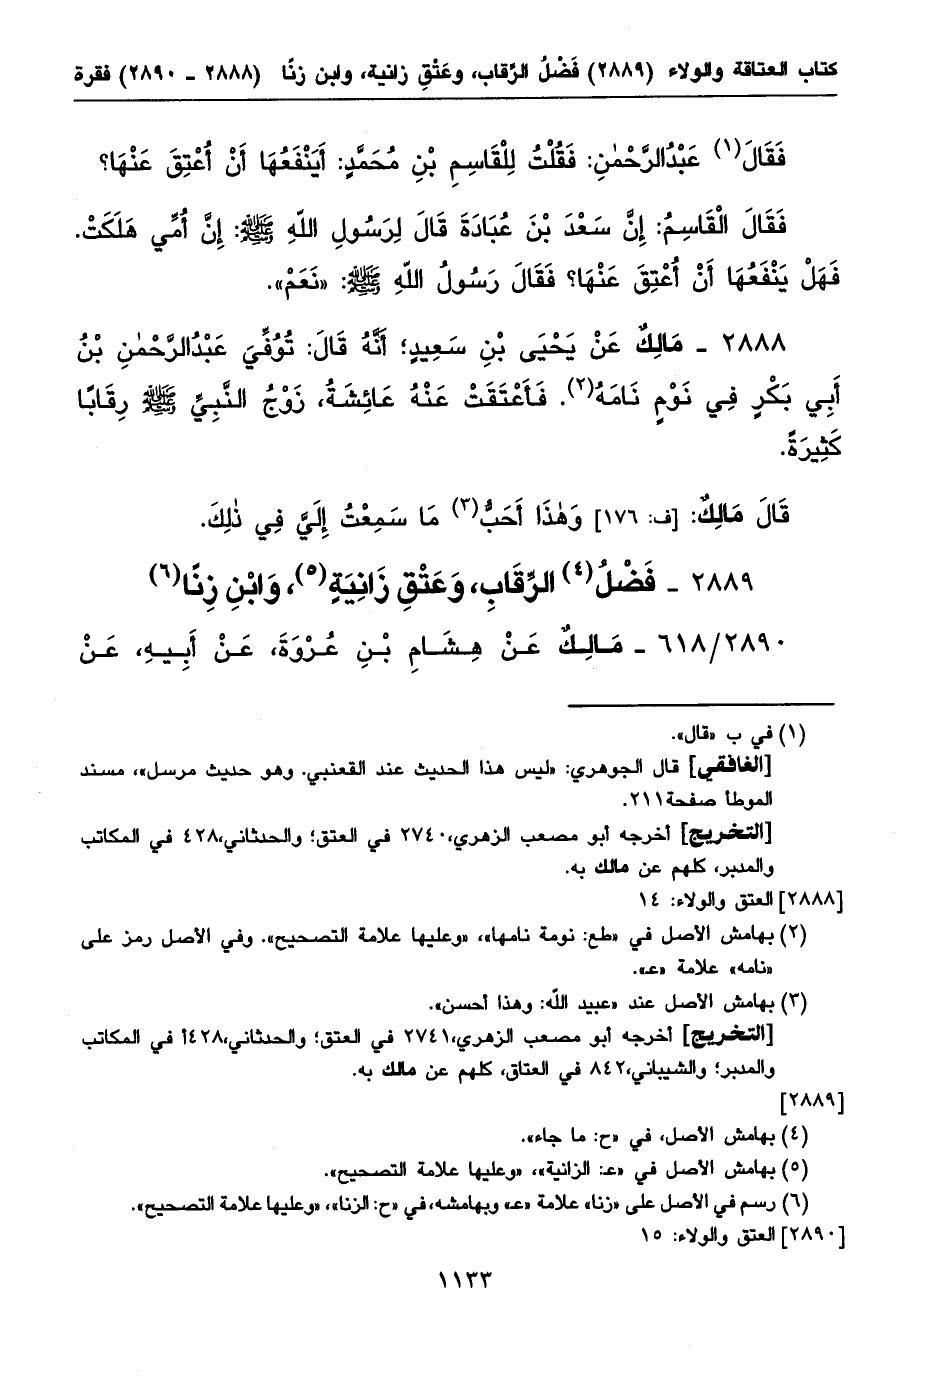 كتاب العتاقة والولاء (٢٨٨٩) فَضْلُ الرِّقاب، وعَتْقِ زانية، وابن زنًا (٢٨٨٨ ـ ٢٨٩٠) فقرة
فَقَالَ(١) عَبْدُالرَّحْمٰنِ: فَقُلْتُ لِلْقَاسِمِ بْنِ مُحَمَّدٍ: أَيَنْفَعُهَا أَنْ أُعْتِقَ عَنْهَا؟
فَقَالَ الْقَاسِمُ: إِنَّ سَعْدَ بْنَ عُبَادَةَ قَالَ لِرَسُولِ اللّٰهِ ﷺ: إِنَّ أُمِّي هَلَكَتْ.
فَهَلْ يَنْفَعُهَا أَنْ أُعْتِقَ عَنْهَا؟ فَقَالَ رَسُولُ اللّٰهِ ﷺ: «نَعَمْ».
٢٨٨٨ ـ مَالِكٌ عَنْ يَحْيَى بْنِ سَعِيدٍ؛ أَنَّهُ قَالَ: تُوُفِّيَ عَبْدُالرَّحْمٰنِ بْنُ
أَبِي بَكْرٍ فِي نَوْمٍ نَامَهُ(٢). فَأَعْتَقَتْ عَنْهُ عَائِشَةُ، زَوْجُ النَّبِيِّ ﷺ رِقَابًا
كَثِيرَةً.
قَالَ مَالِكٌ: [ف: ١٧٦] وَهٰذَا أَحَبُّ(٣) مَا سَمِعْتُ إِلَيَّ فِي ذٰلِكَ.
٢٨٨٩ ـ فَضْلُ(٤) الرِّقَابِ، وَعَتْقِ زَانِيَةٍ(٥)، وَابْنِ زِنًا(٦)
٦١٨/٢٨٩٠ ـ مَالِكٌ عَنْ هِشَامِ بْنِ عُرْوَةَ، عَنْ أَبِيهِ، عَنْ
(١) في ب «قال».
[الغافقي] قال الجوهري: «ليس هذا الحديث عند القعنبي. وهو حديث مرسل»، مسند
الموطأ صفحة٢١١.
[التخريج] أخرجه أبو مصعب الزهري،٢٧٤٠ في العتق؛ والحدثاني،٤٢٨ في المكاتب
والمدبر، كلهم عن مالك به.
[٢٨٨٨] العتق والولاء: ١٤
(٢) بهامش الأصل في «طع: نومة نامها»، «وعليها علامة التصحيح». وفي الأصل رمز على
«نامه» علامة «عـ».
(٣) بهامش الأصل عند «عبيد اللّٰه: وهذا أحسن».
[التخريج] أخرجه أبو مصعب الزهري،٢٧٤١ في العتق؛ والحدثاني،٤٢٨أ في المكاتب
والمدبر؛ والشيباني،٨٤٢ في العتاق، كلهم عن مالك به.
[٢٨٨٩]
(٤) بهامش الأصل، في «ح: ما جاء».
(٥) بهامش الأصل في «عـ: الزانية»، «وعليها علامة التصحيح».
(٦) رسم في الأصل على «زنا» علامة «عـ» وبهامشه،في «ح: الزنا»، «وعليها علامة التصحيح».
[٢٨٩٠] العتق والولاء: ١٥
١١٣٣